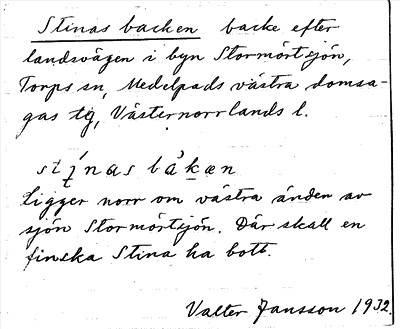 Stinas backen backe efter
landsvägen i byn Stormörtsjön,
Torps sn, Medelpads västra domsa-
gas tg, Västernorrlands l.
stinas bakæn
ligger norr om västra änden av
sjön Stormörtsjön. Där skall en
finska Stina ha bott.
Valter Jansson 1932.